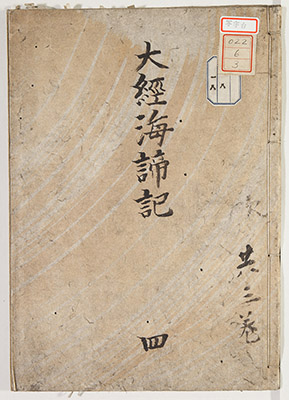 大經海諦記
四
共三巻
022
6
3
一八
八